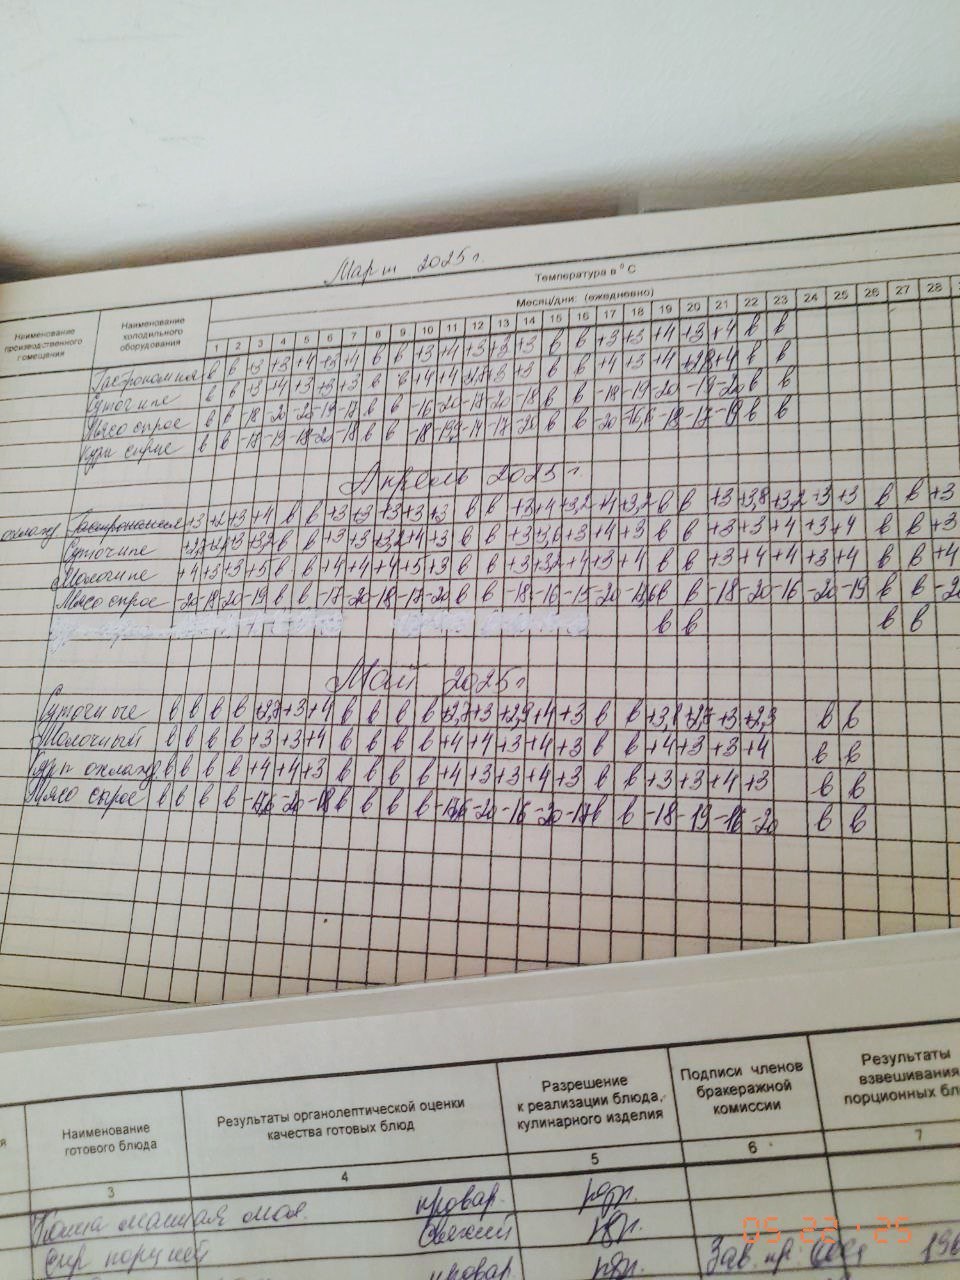 Март 2025г.
Наименование производственного помещения
Наименование холодильного оборудования
Температура в °С
Месяц/дни: (ежедневно)
1 2 3 4 5 6 7 8 9 10 11 12 13 14 15 16 17 18 19 20 21 22 23 24 25 26 27 28
Гастрономия в в +3 +3 +4 +3 +4 в в +3 +4 +3 +3 +3 в в +3 +3 +4 +3 +4 в в
Суточные в в +3 +4 +3 +3 +3 в в +4 +4 +3 +3 в в +4 +3 +4 +4 в в
Мясо сырое в в -18 -20 -19 -17 в в -16 -20 -17 -20 -18 в в -18 -19 -20 -18 -20 в в
куры сырые в в -17 -19 -18 -20 -18 в в -18 -17 в в -20 -16,6 -18 -17 -19 в в
Апрель 2025г.
охлажд Гастрономия +3 +2 +3 +4 в в +3 +3 +3 +3 +3 в в +3 +4 +3,2 +4 +3,2 в в +3 +3,8 +3,2 +3 +3 в в +3
Суточные +2,7 +3 +3,2 в в +3 +3 +3,2 +4 +3 в в +3 +3,6 +3 +4 +3 в в +3 +3 +4 +3 +4 в в +3
Молочные +4 +3 +3 +5 в в +4 +4 +4 +5 +3 в в +3 +3,2 +4 +3 +4 в в +3 +4 +4 +3 +4 в в +4
Мясо сырое -20 -19 -20 -19 в в -17 -20 -18 -17 -20 в в -18 -16 -15 -20 в в -18 -20 -16 -20 -19 в в
в в в в
Май 2025г
Суточные в в в в +2,7 +3 +4 в в в в +2,7 +3 +2,9 +4 +3 в в +3,1 +2,7 +3 +2,3 в в
Молочный в в в в +3 +3 +4 в в в в +4 +4 +3 +4 +3 в в +4 +3 +3 +4 в в
охлажд в в в в +4 +4 +3 в в в в +4 +3 +3 +4 +3 в в +3 +3 +4 +3 в в
Мясо сырое в в в в -17,6 -20 -18 в в в в -17,6 -20 -16 -20 -17 в в -18 -19 -16 -20 в в
Наименование готового блюда
Результаты органолептической оценки качества готовых блюд
Разрешение к реализации блюда, кулинарного изделия
Подписи членов бракеражной комиссии
Результаты взвешивания порционных
3 4 5 6 7
Каша манная мол. провар. разр.
Сыр порций свежий разр.
провар. разр. Зав. пр.
05 22 '25